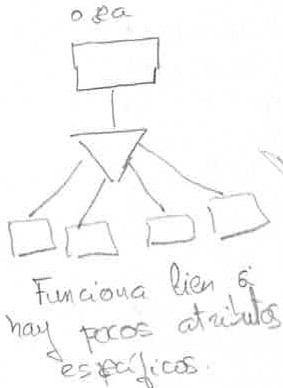 o sea
Funciona bien si
hay pocos atributos
específicos.